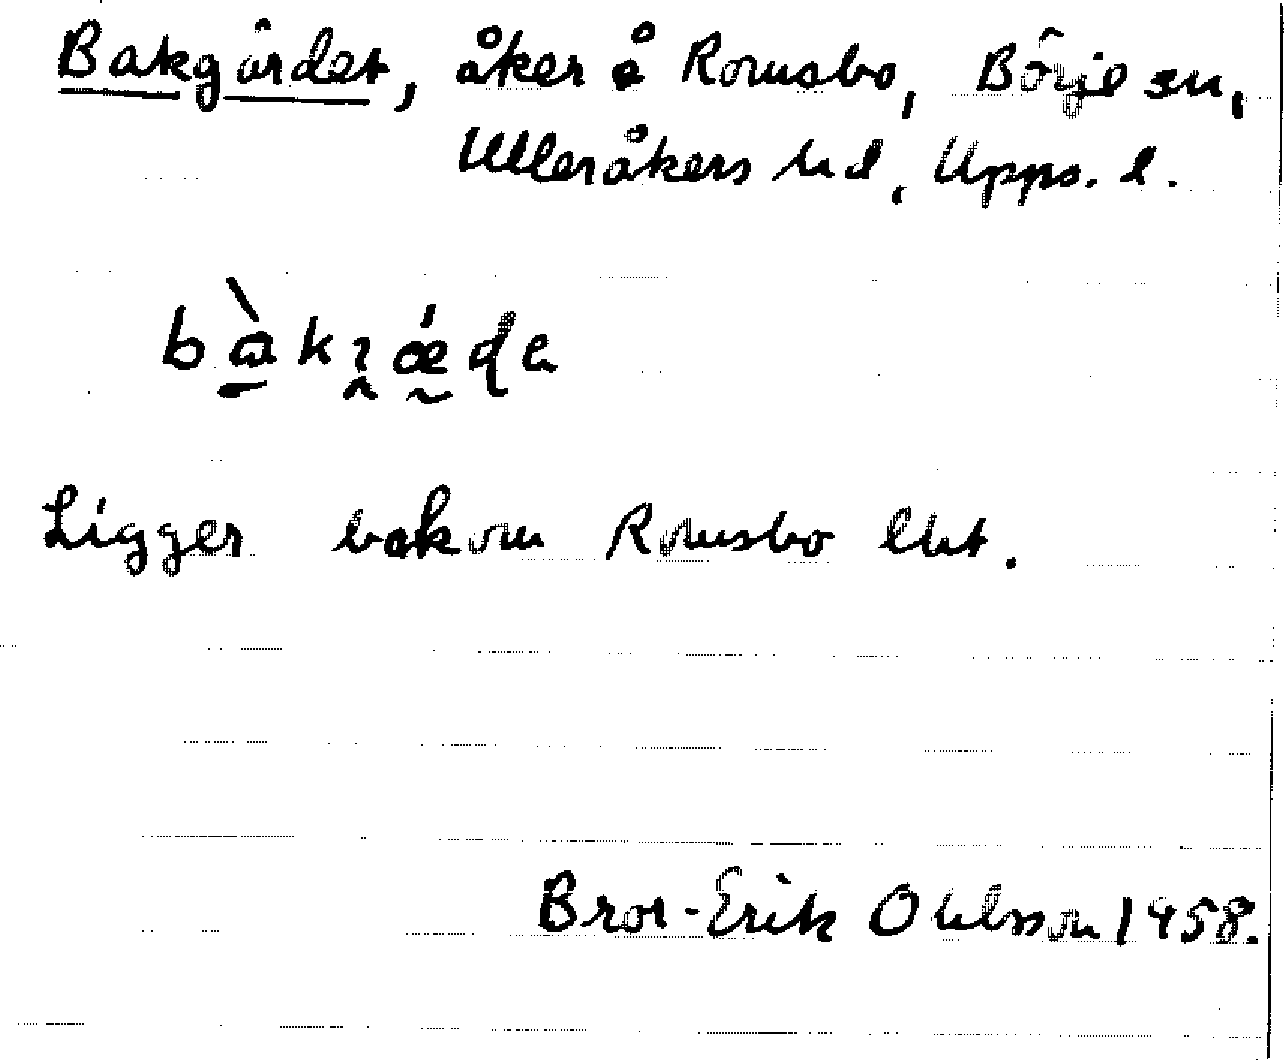 Bakgärdet, åker å Romsbo, Börje sn,
Ulleråkers hd, Upps. l.
Ligger bakom Romsbo ebt.
Bror-Erik Ohlsson 1958.